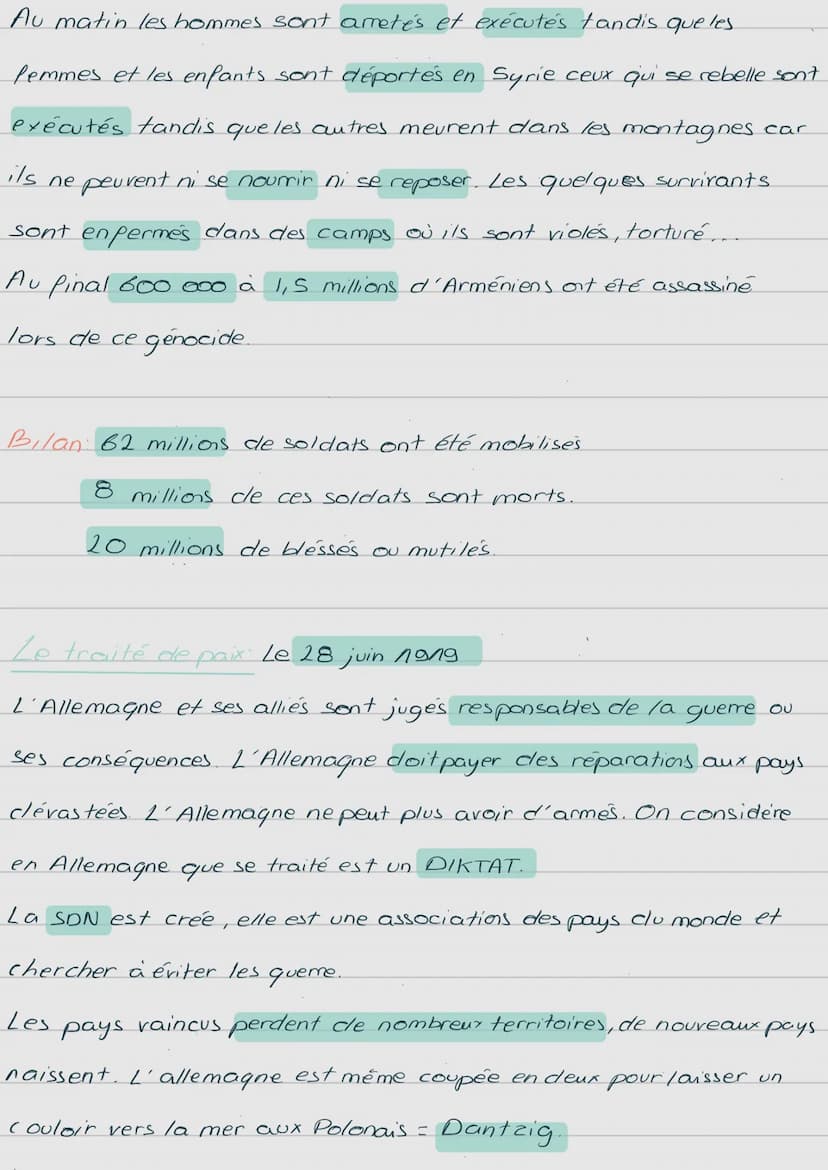 Au matin les hommes sont arretés et exécutés tandis que les
femmes et les enfants sont déportés en Syrie ceux qui se rebelle sont
exécutés tandis que les autres meurent dans les montagnes car
ils ne peuvent ni se nourrir ni se reposer. Les quelques survivants
sont enfermés dans des camps où ils sont violés, torturé...
Au final 600 000 à 1,5 millions d'Arméniens ont été assassiné
lors de ce génocide.
Bilan: 62 millions de soldats ont été mobilisés
8 millions de ces soldats sont morts.
20 millions de bléssés ou mutilés.
Le traité de paix: Le 28 juin 1919
L'Allemagne et ses alliés sont jugés responsables de la guerre ou
ses conséquences. L'Allemagne doit payer des réparations aux pays
dévastées. L'Allemagne ne peut plus avoir d'armes. On considère
en Allemagne que se traité est un DIKTAT.
La SDN est crée, elle est une associations des pays du monde et
chercher à éviter les guerre.
Les pays vaincus perdent de nombreux territoires, de nouveaux pays
naissent. L'allemagne est même coupée en deux pour laisser un
couloir vers la mer aux Polonais = Dantzig.